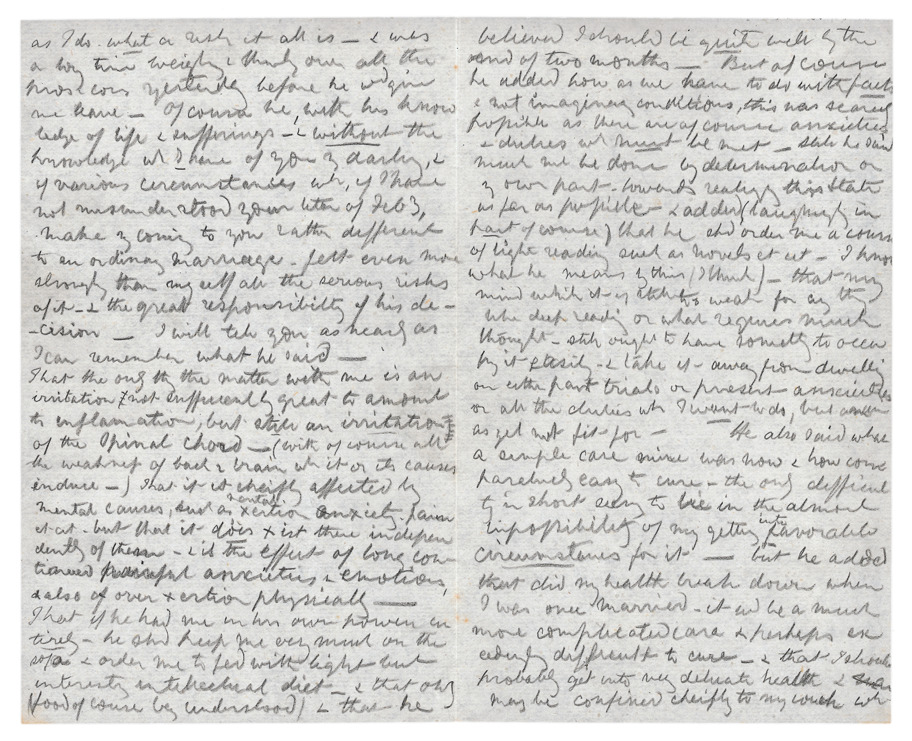 as I do. what a risk it all is — & was
a long time weighing & thinking over all the
pros & cons yesterday before he wd give
me leave — Of course he, with his know
ledge of life & sufferings — & without the
knowledge wh I have of you my darling, &
of various circumstances wh, if I have
not misunderstood your letter of Feb 3,
make my coming to you rather different
to an ordinary marriage — felt even more
strongly than myself all the serious risks
of it — & the great responsibility of his de-
-cision — I will tell you as nearly as
I can remember what he said —
That the only thg the matter with me is an
irritation not sufficiently great to amount
to inflamation, but still an irritation
of the Spinal Chord — (with of course all
the weakness of back & brain wh it or its causes
endure —) That it is cheifly affected by
mental causes, such as mental xertion anxiety. pain
et-cet. but that it does xist there indepen
dently of them — & is the effect of long con
tinued painful anxieties & emotions,
& also of over xertion physically —
That if he had me in his own power en
tirely — he shd keep me very much on the
sofa & order me to fed with light but
interestg intellectual diet — & that only
(food of course being understood) & that he
believed I should be quite well by the
end of two months — But of course
he added how as we have to do with facts
& not imaginary conditions, this was scarcely
possible as there are of course anxieties
& duties wh must be met — still he said
must me be done by determination on
my own part — towards realizg this state
as far as possible — & added (laughingly in
part of course) that he shd order me a course
of light reading such as novels et cet — I know
what he means by this (I think) — that my
mind while it is still too weak for any thg
like deep reading or what requires much
thought — still ought to have somethg to occu
py it easily — & take it away from dwelling
on either past trials or present anxieties
or all the duties wh I want to do, but am
as yet not fit for — He also said what
a simple case mine was now & how com
paratively easy to cure — the only difficul
ty in short seemg to lie in the almost
impossibility of my getting into favorable
circumstances for it — but he added
that did my health break down when
I was once married — it wd be a much
more complicated case & perhaps ex
ceedingly difficult to cure — & that I should
probably get into very delicate health &
maybe confined cheifly to my couch wh